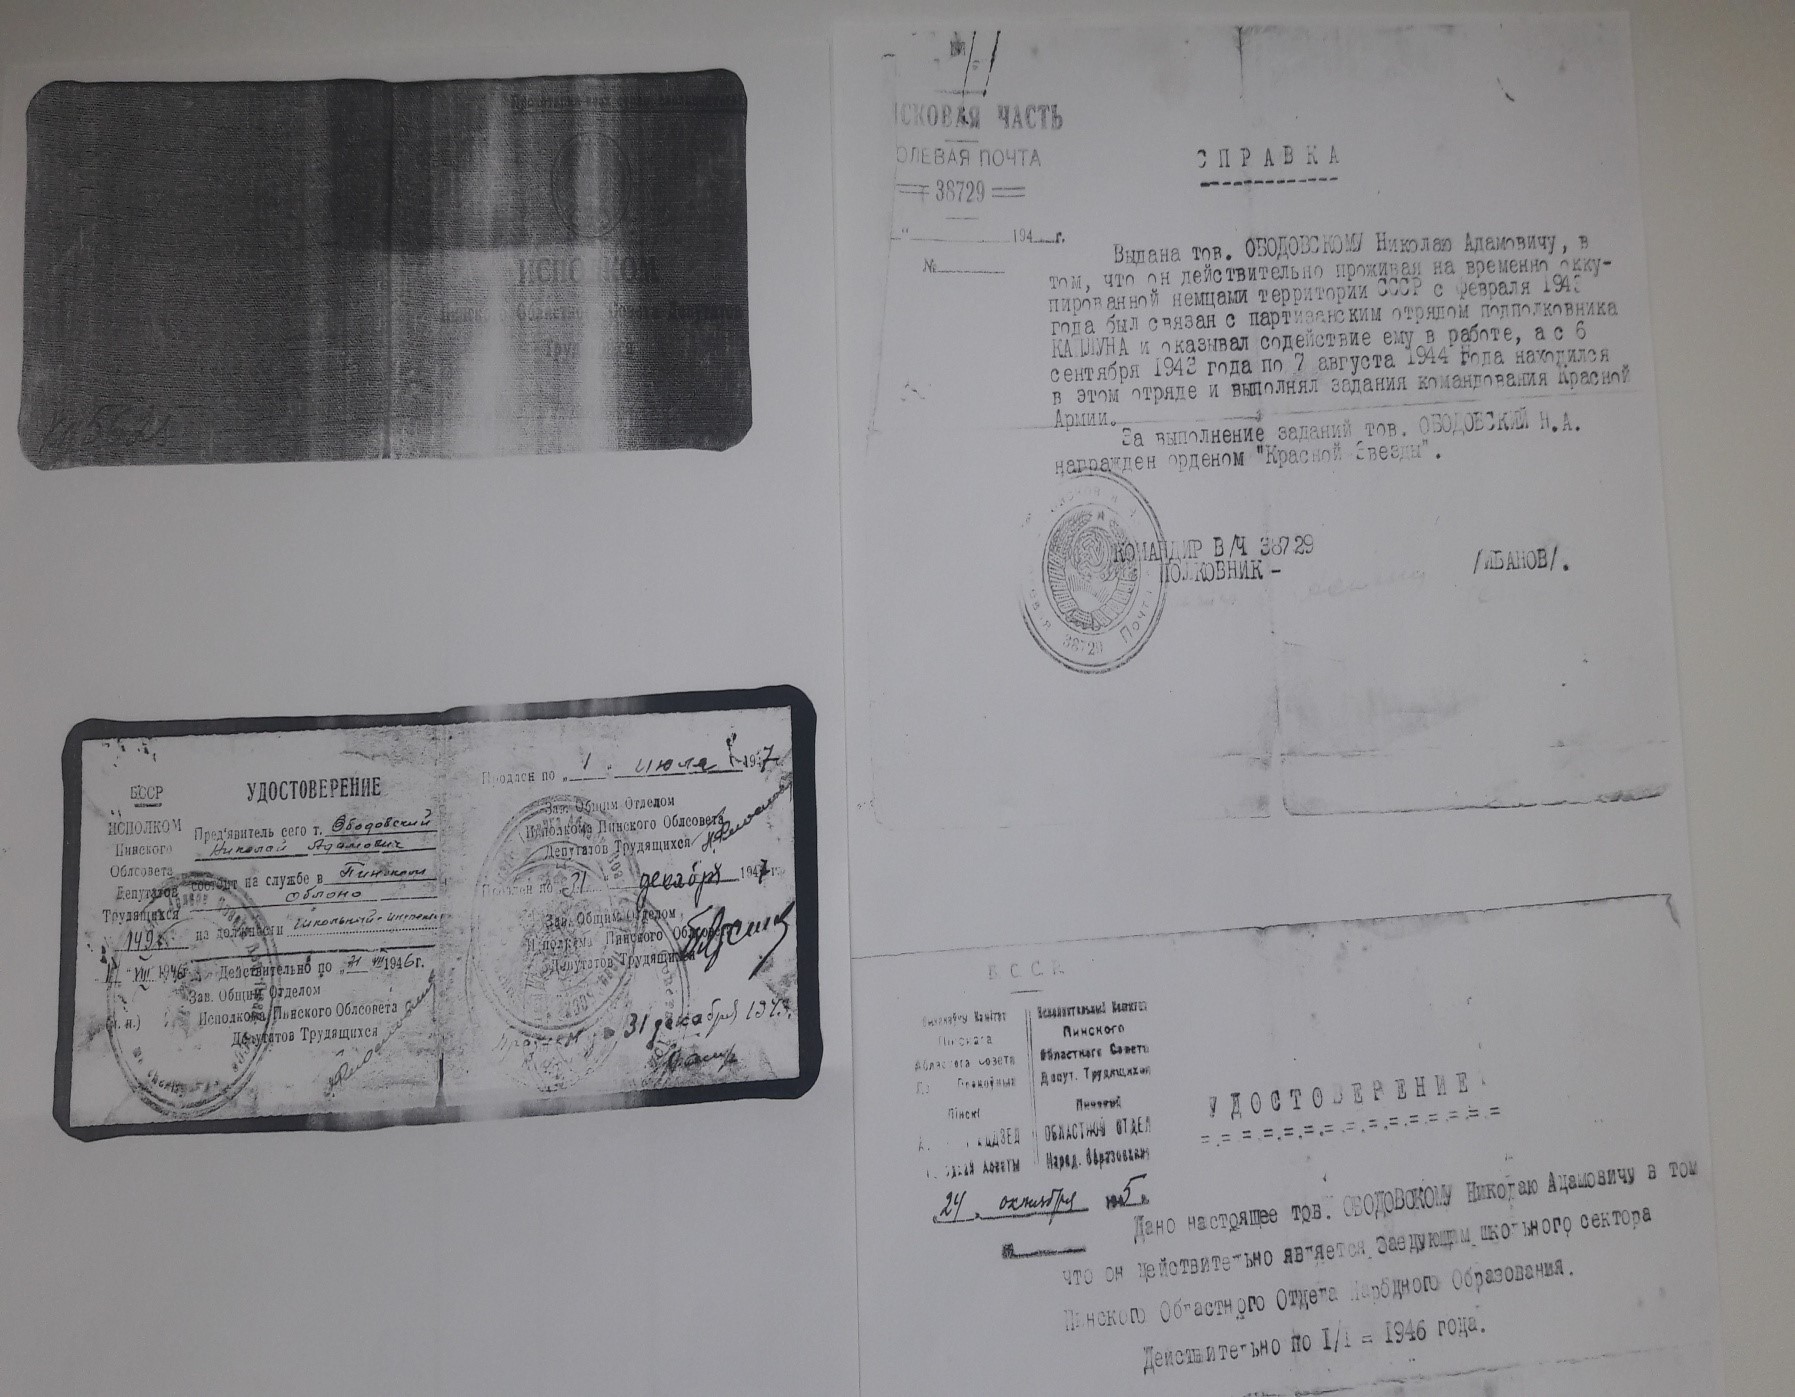 Пролетарии всех стран, соединяйтесь
ИСПОЛКОМ
Пинского Областного Совета Депутатов
Трудящихся
БССР
ИСПОЛКОМ
Пинского
Облсовета
Депутатов
Трудящихся
149
VIII 1946г.
УДОСТОВЕРЕНИЕ
Пред'явитель сего т. Ободовский
Николай Адамович
состоит на службе в Пинском
облоно
на должности школьный-инспек
Действительно по "31 VII 1946г.
Зав. Общим Отделом
Исполкома Пинского Облсовета
Депутатов Трудящихся
Продлен по "1" июля 1947
Зав. Общим Отделом
Исполкома Пинского Облсовета
Депутатов Трудящихся
Продлен по "31" декабря 1947г.
Зав. Общим Отделом
Исполкома Пинского Облсовета
Депутатов Трудящихся
31 декабря 194
СКОВАЯ ЧАСТЬ
ОЛЕВАЯ ПОЧТА
38729
" 194 г.
№
СПРАВКА
Выдана тов. ОБОДОВСКОМУ Николаю Адамовичу, в
том, что он действительно проживая на временно окку-
пированной немцами территории СССР с февраля 1943
года был связан с партизанским отрядом подполковника
КАПЛУНА и оказывал содействие ему в работе, а с 6
сентября 1943 года по 7 августа 1944 года находился
в этом отряде и выполнял задания командования Красной
Армии.
За выполнение заданий тов. ОБОДОВСКИЙ Н.А.
награжден орденом "Красной Звезды".
КОМАНДИР В/Ч 38729
ПОЛКОВНИК - /ИВАНОВ/.
Почта
38729
БССР
Камітэт
Пінскага
Абласнога Совета
Пінскі
Исполнительный Комитет
Пинского
Областного Совета
Депут. Трудящихся
Пинский
ОБЛАСТНОЙ ОТДЕЛ
Народ. Образования
24 октября 5 г.
УДОСТОВЕРЕНИЕ
Дано настоящее тов. ОБОДОВСКОМУ Николаю Адамовичу в том
что он действительно является Заедующим школьного сектора
Пинского Областного Отдела Народного Образования.
Действительно по I/I = 1946 года.